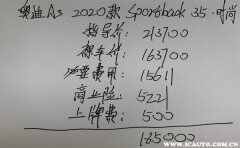 奥迪A3 2020款 Sportback 35 时尚
指导价: 213700
裸车价: 163700
必要费用: 15611
商业险: 5221
上牌费: 500
185000
www.icauto.com.cn